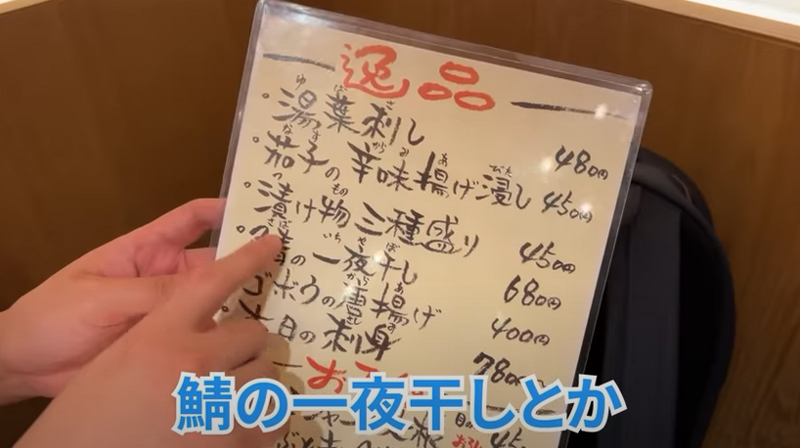 逸品
湯葉刺し 480円
茄子の辛味揚げ浸し 450円
漬け物三種盛り 450円
鯖の一夜干し 680円
ゴボウの唐揚げ 400円
本日の刺身 780
鯖の一夜干しとか